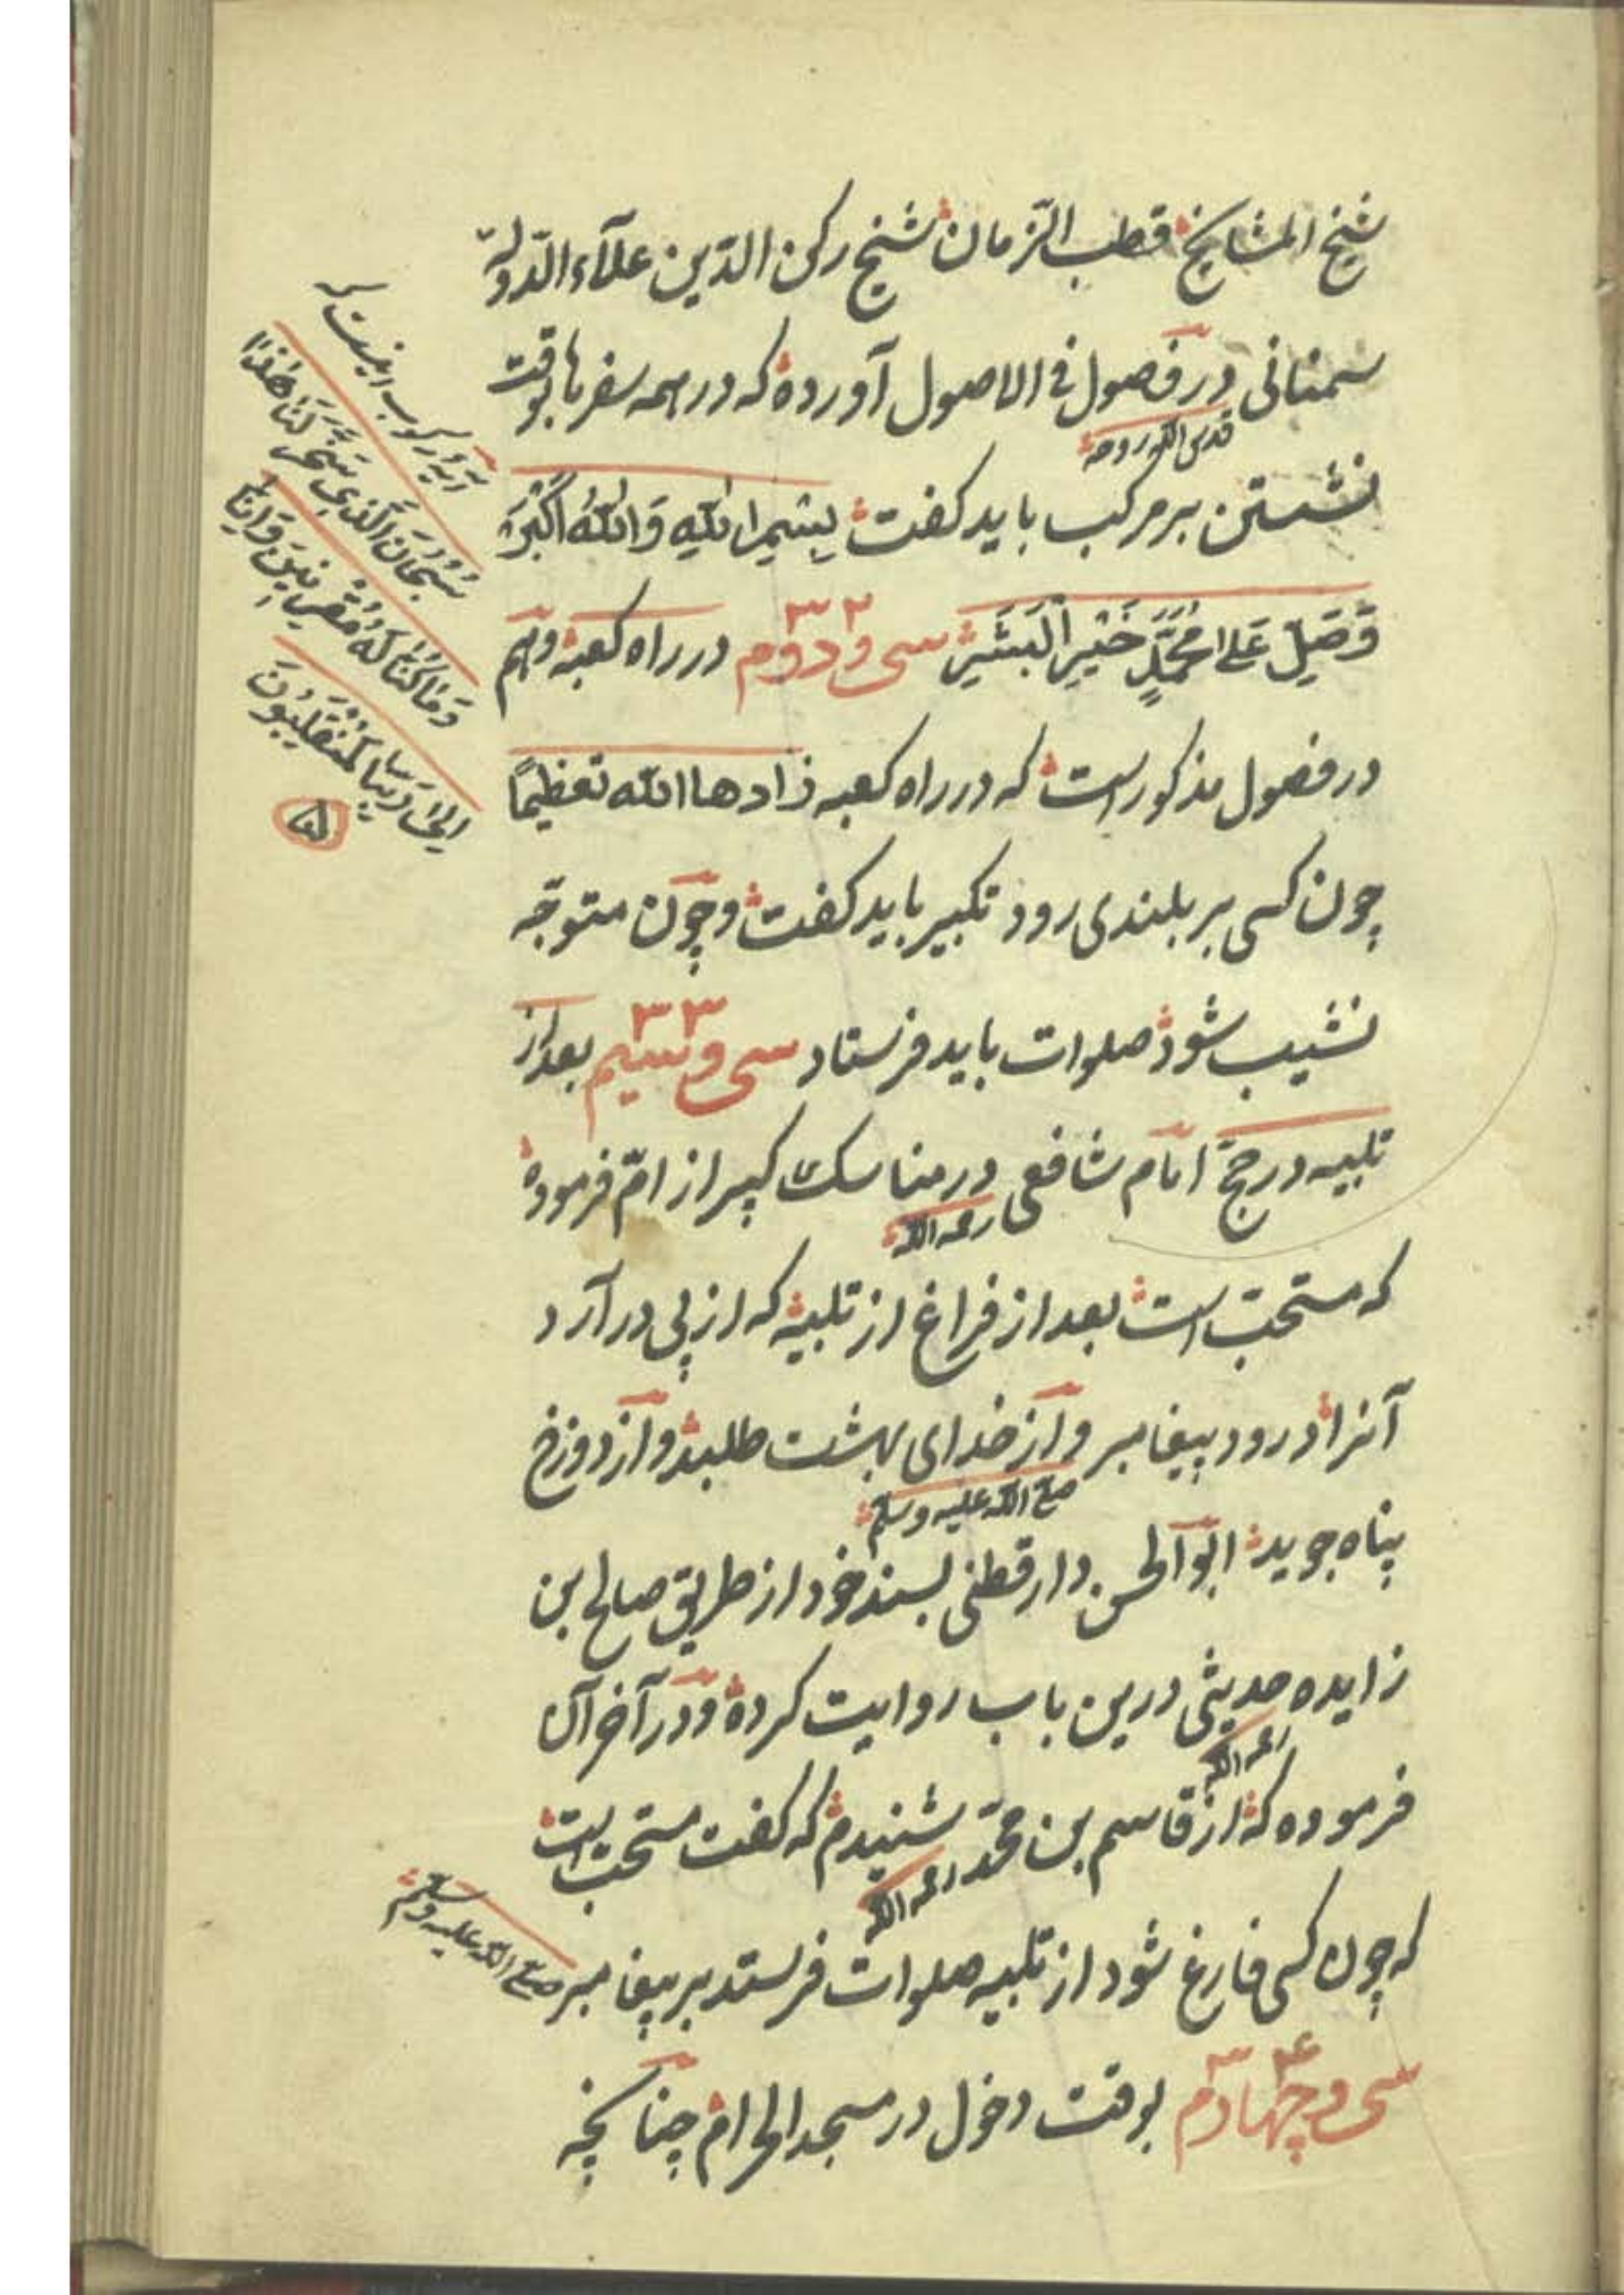 شیخ المشایخ قطب الزّمان شیخ رکن الدّین علآء الدّولة
سمنانی در فصول فی الاصول آورده که در همه سفرها بوقت
قدس الله روحه
نشستن بر مرکب باید گفت بِسْمِ اللهِ وَاللهُ اَکْبَرُ
وَصَلِّ عَلی مُحَمَّدٍ خَیْرِ الْبَشَرِ سی و دوم ۳۲ در راه کعبه و هم
در فصول مذکور است که در راه کعبه زادها الله تعظیمًا
چون کسی بر بلندی رود تکبیر باید گفت و چون متوجّه
نشیب شود صلوات باید فرستاد سی و سیم ۳۳ بعد از
تلبیه در حجّ امام شافعی در مناسک کبیر از امّ فرموده
رحمه الله
که مستحبّ است بعد از فراغ از تلبیه که از پی در آرد
آنرا درود پیغامبر و از خدای بهشت طلبد و از دوزخ
صلی الله علیه وسلم
پناه جوید ابو الحسن دارقطنی بسند خود از طریق صالح بن
زایده حدیثی درین باب روایت کرده و در آخر آن
رحمه الله
فرموده که از قاسم بن محمّد شنیدم که گفت مستحبّ است
رحمه الله
که چون کسی فارغ شود از تلبیه صلوات فرستد بر پیغامبر صلی الله علیه وسلم
سی و چهارم ۳۴ بوقت دخول در مسجد الحرام چنانچه
آیهٔ رکوب اینست که
سُبْحَانَ الَّذِی سَخَّرَ لَنَا هٰذَا
وَمَا کُنَّا لَهُ مُقْرِنِینَ وَاِنَّا
اِلیٰ رَبِّنَا لَمُنْقَلِبُونَ